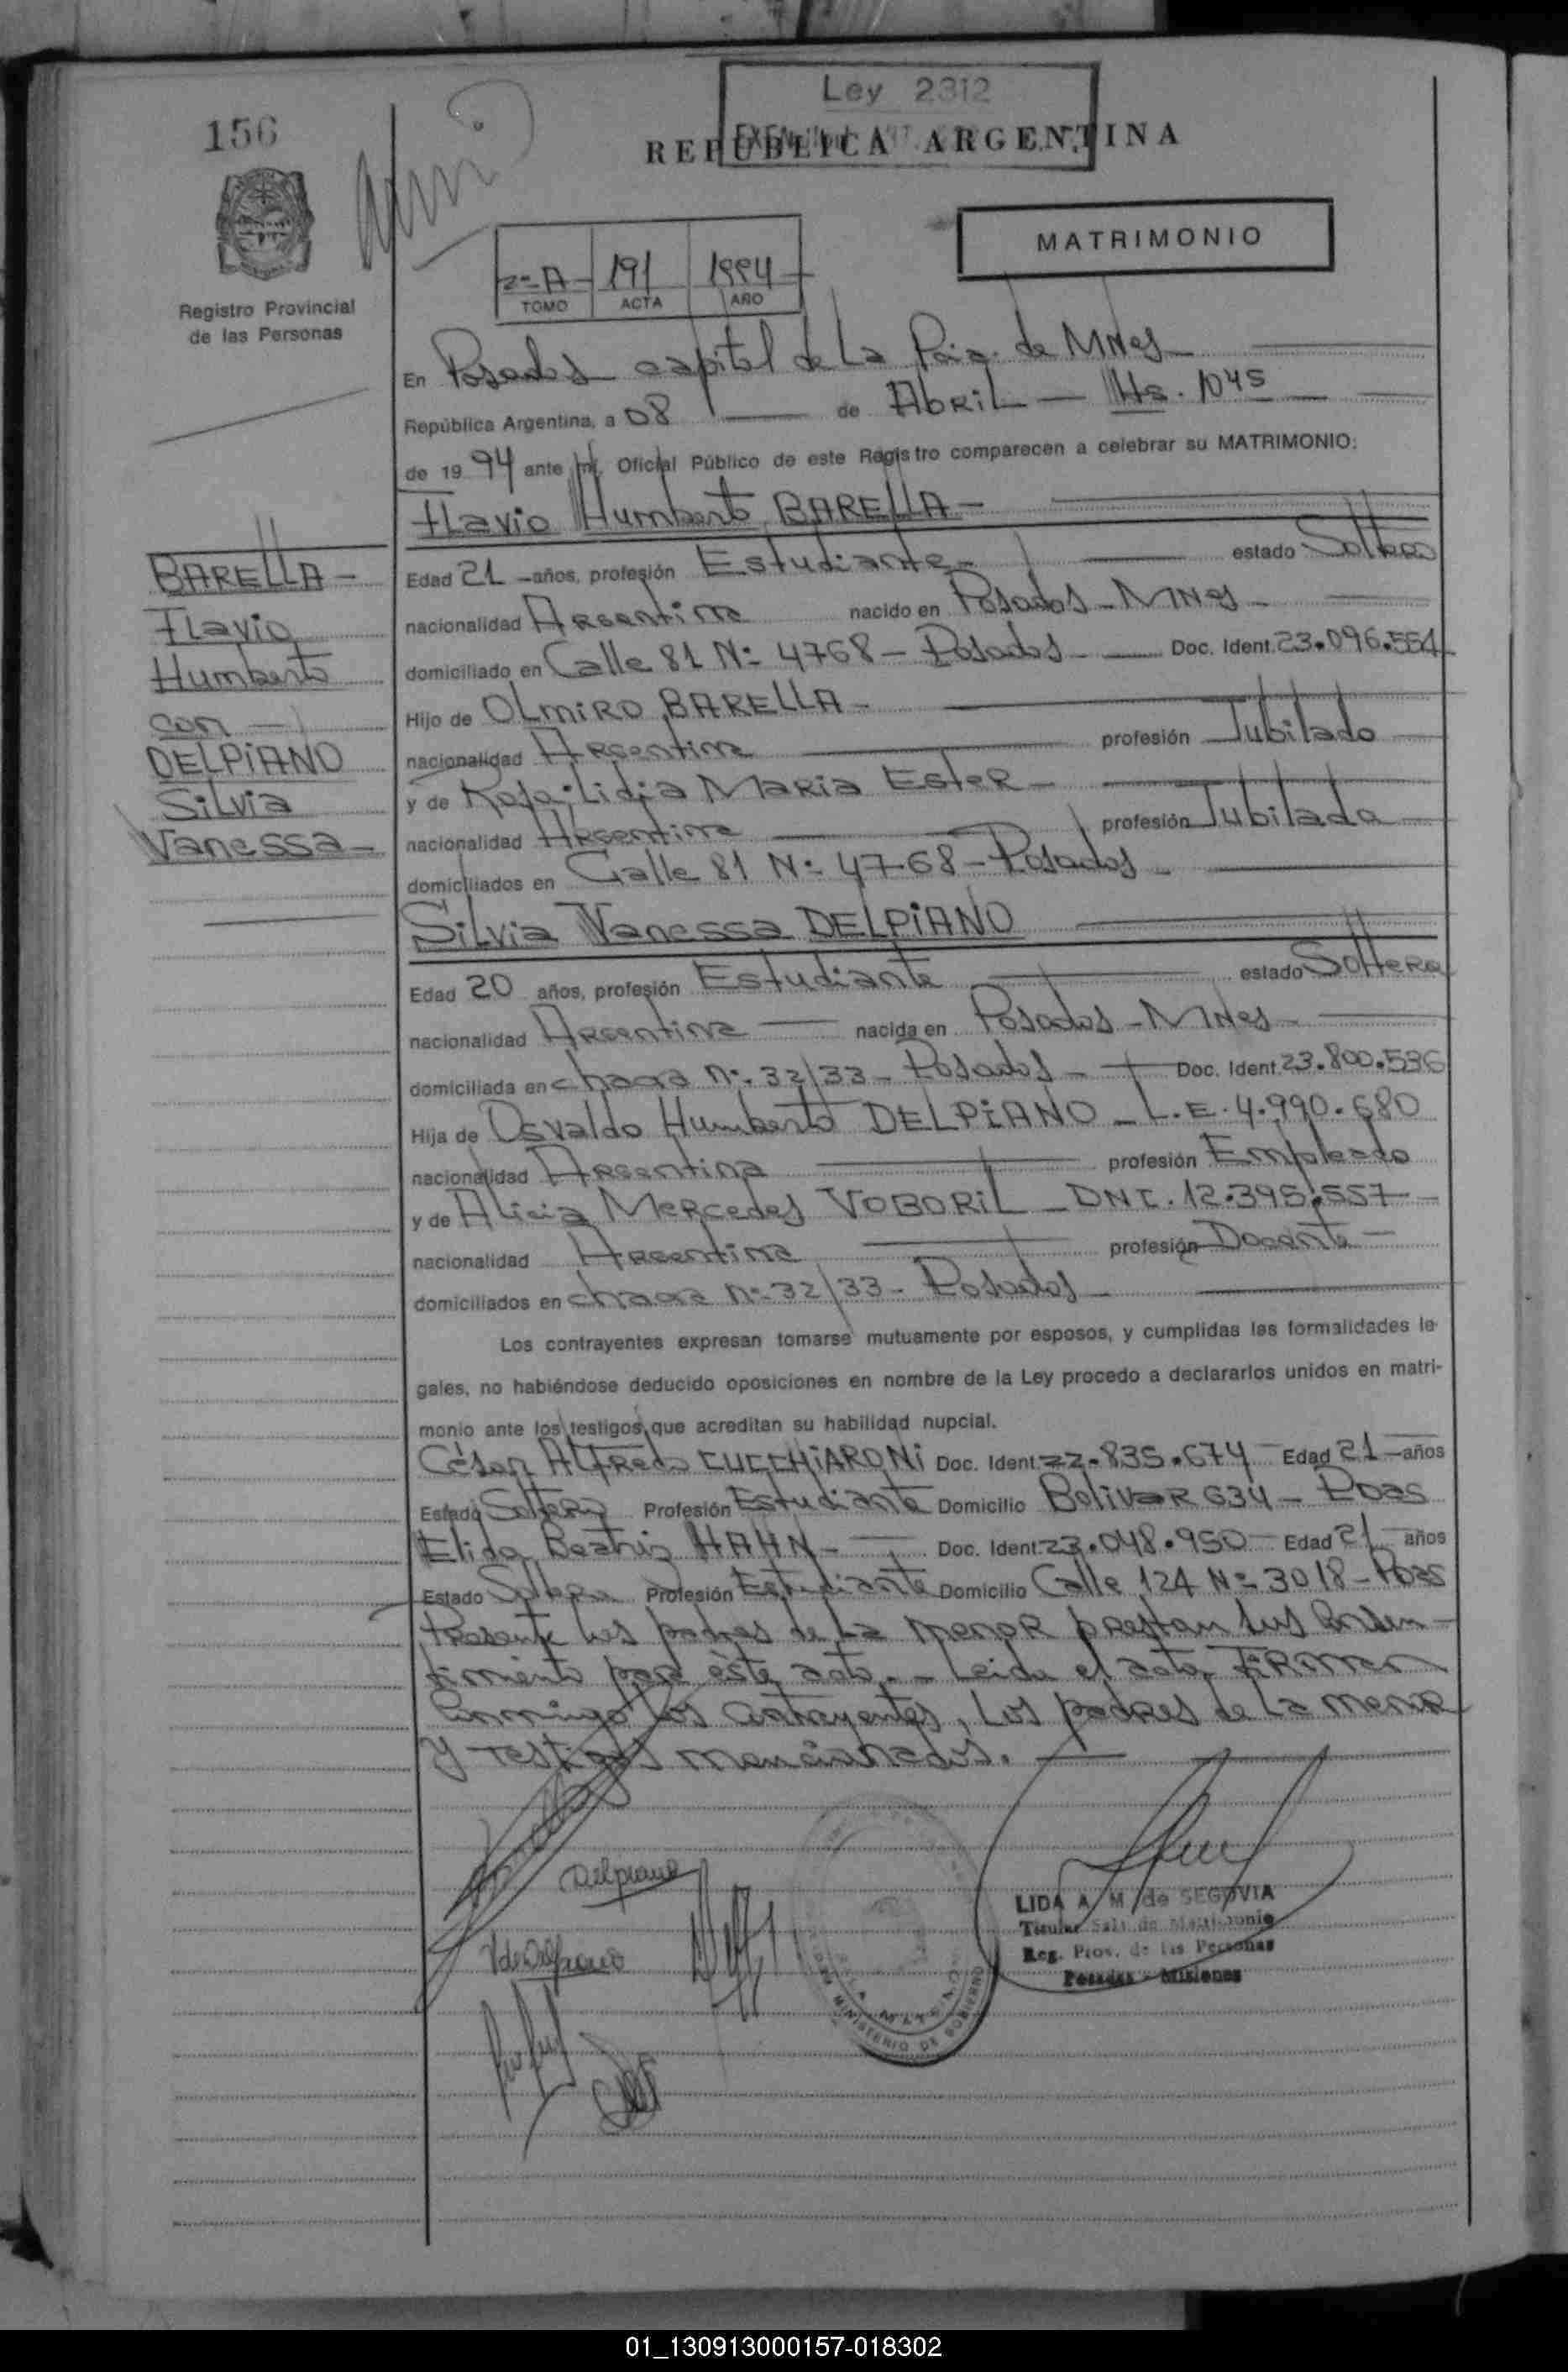 Ley 2312
156
REPUBLICA ARGENTINA
MATRIMONIO
2º A 191 1994
TOMO ACTA AÑO
Registro Provincial
de las Personas
En Posadas capital de La Pcia. de MNes
República Argentina, a 08 de Abril Hs. 1045
de 1994 ante mí, Oficial Público de este Registro comparecen a celebrar su MATRIMONIO:
Flavio Humberto BARELLA
BARELLA
Flavio
Humberto
con
DELPiANO
Silvia
Vanessa
Edad 21 años, profesión Estudiante estado Soltero
nacionalidad Argentina nacido en Posadas - MNes
domiciliado en Calle 81 Nº 4768 - Posadas Doc. Ident. 23.096.554
Hijo de OLmiRO BARELLA
nacionalidad Argentina profesión Jubilado
y de Lidia Maria Ester
nacionalidad Argentina profesión Jubilada
domiciliados en Calle 81 Nº 4768 - Posadas
Silvia Vanessa DELPiANO
Edad 20 años, profesión Estudiante estado Soltera
nacionalidad Argentina nacida en Posadas - MNes
domiciliada en chacra Nº 32/33 - Posadas Doc. Ident. 23.800.536
Hija de Osvaldo Humberto DELPiANO - L.E. 4.990.680
nacionalidad Argentina profesión Empleado
y de Alicia Mercedes VOBORiL - DNI. 12.395.557
nacionalidad Argentina profesión Docente
domiciliados en chacra Nº 32/33 - Posadas
Los contrayentes expresan tomarse mutuamente por esposos, y cumplidas las formalidades le-
gales, no habiéndose deducido oposiciones en nombre de la Ley procedo a declararlos unidos en matri-
monio ante los testigos que acreditan su habilidad nupcial.
César Alfredo CUCCHiARONi Doc. Ident. 22.835.674 Edad 21 años
Estado Soltero Profesión Estudiante Domicilio Bolivar 634 - Pdas
Elida Beatriz HAHN Doc. Ident. 23.048.950 Edad 21 años
Estado Soltera Profesión Estudiante Domicilio Calle 124 Nº 3018 - Pdas
Presente los padres de La menor prestan sus Consen-
timiento para éste acto. - Leida el acta, FiRman
Conmigo los contrayentes, Los padres de La menor
y testigos mencionados.
Delpiano
V de Delpiano
LIDA A. M. de SEGOVIA
Titular Sala de Matrimonio
Reg. Prov. de las Personas
Posadas - Misiones
MINISTERIO DE GOBIERNO
01_130913000157-018302